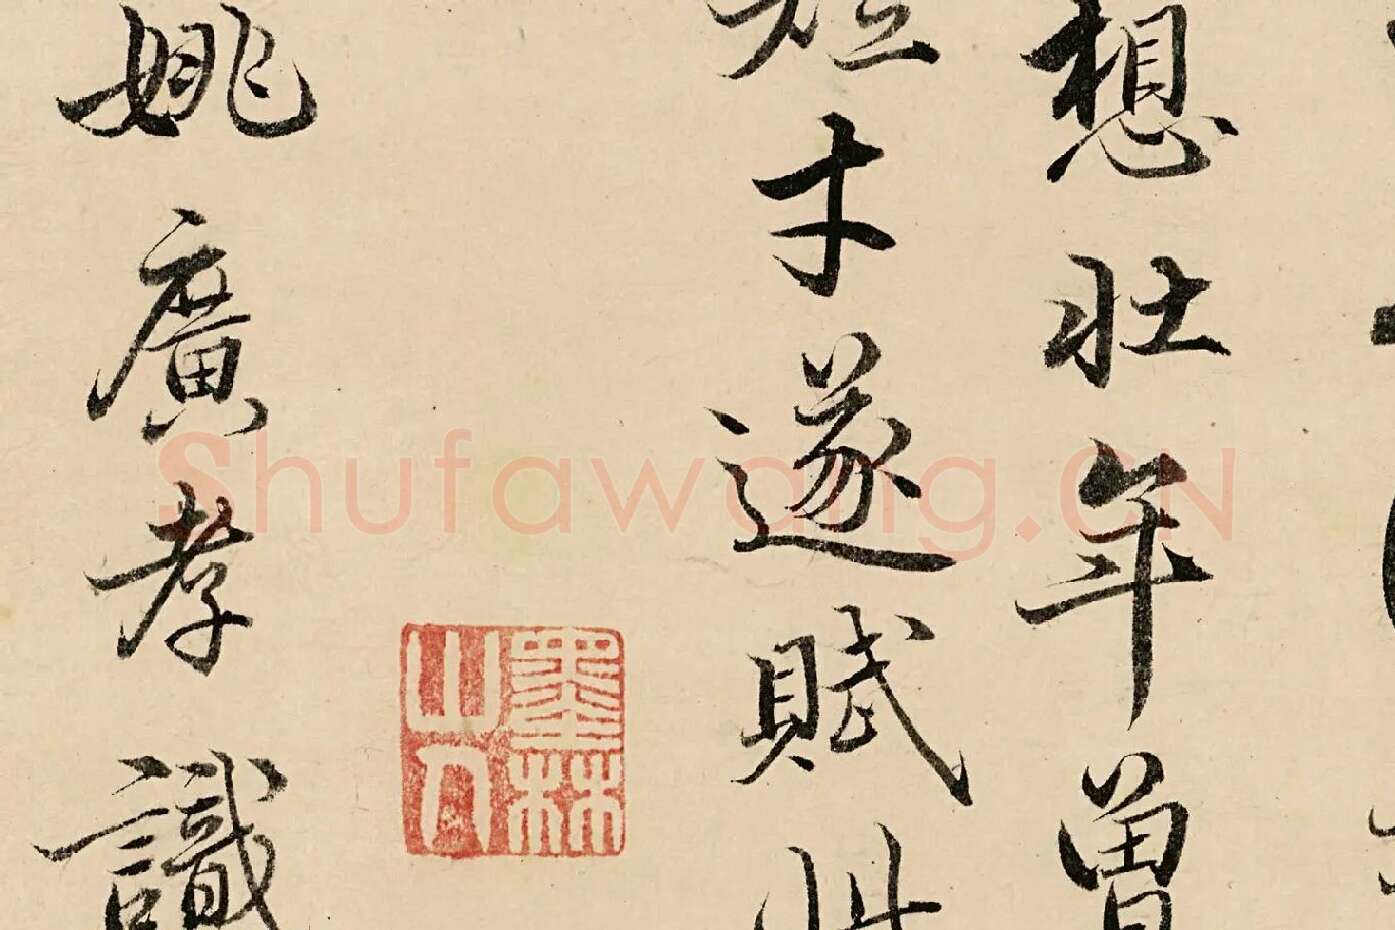 想壯年曽
短才遂賦此
墨林
山人
姚廣孝識
Shufawang.CN